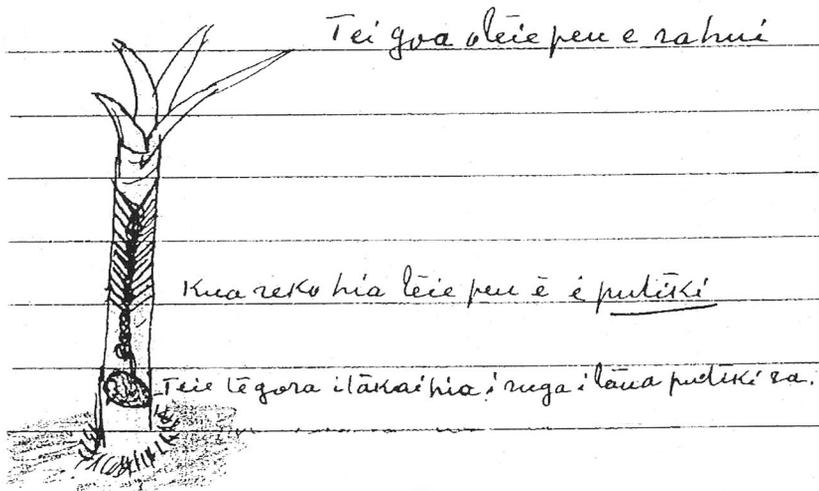 Tei goa o tēie peu e rahui
Kua reko hia tēie peu ē e putīkí
Teie tēgora i tākai hia i ruga i tāua putīkí ra.